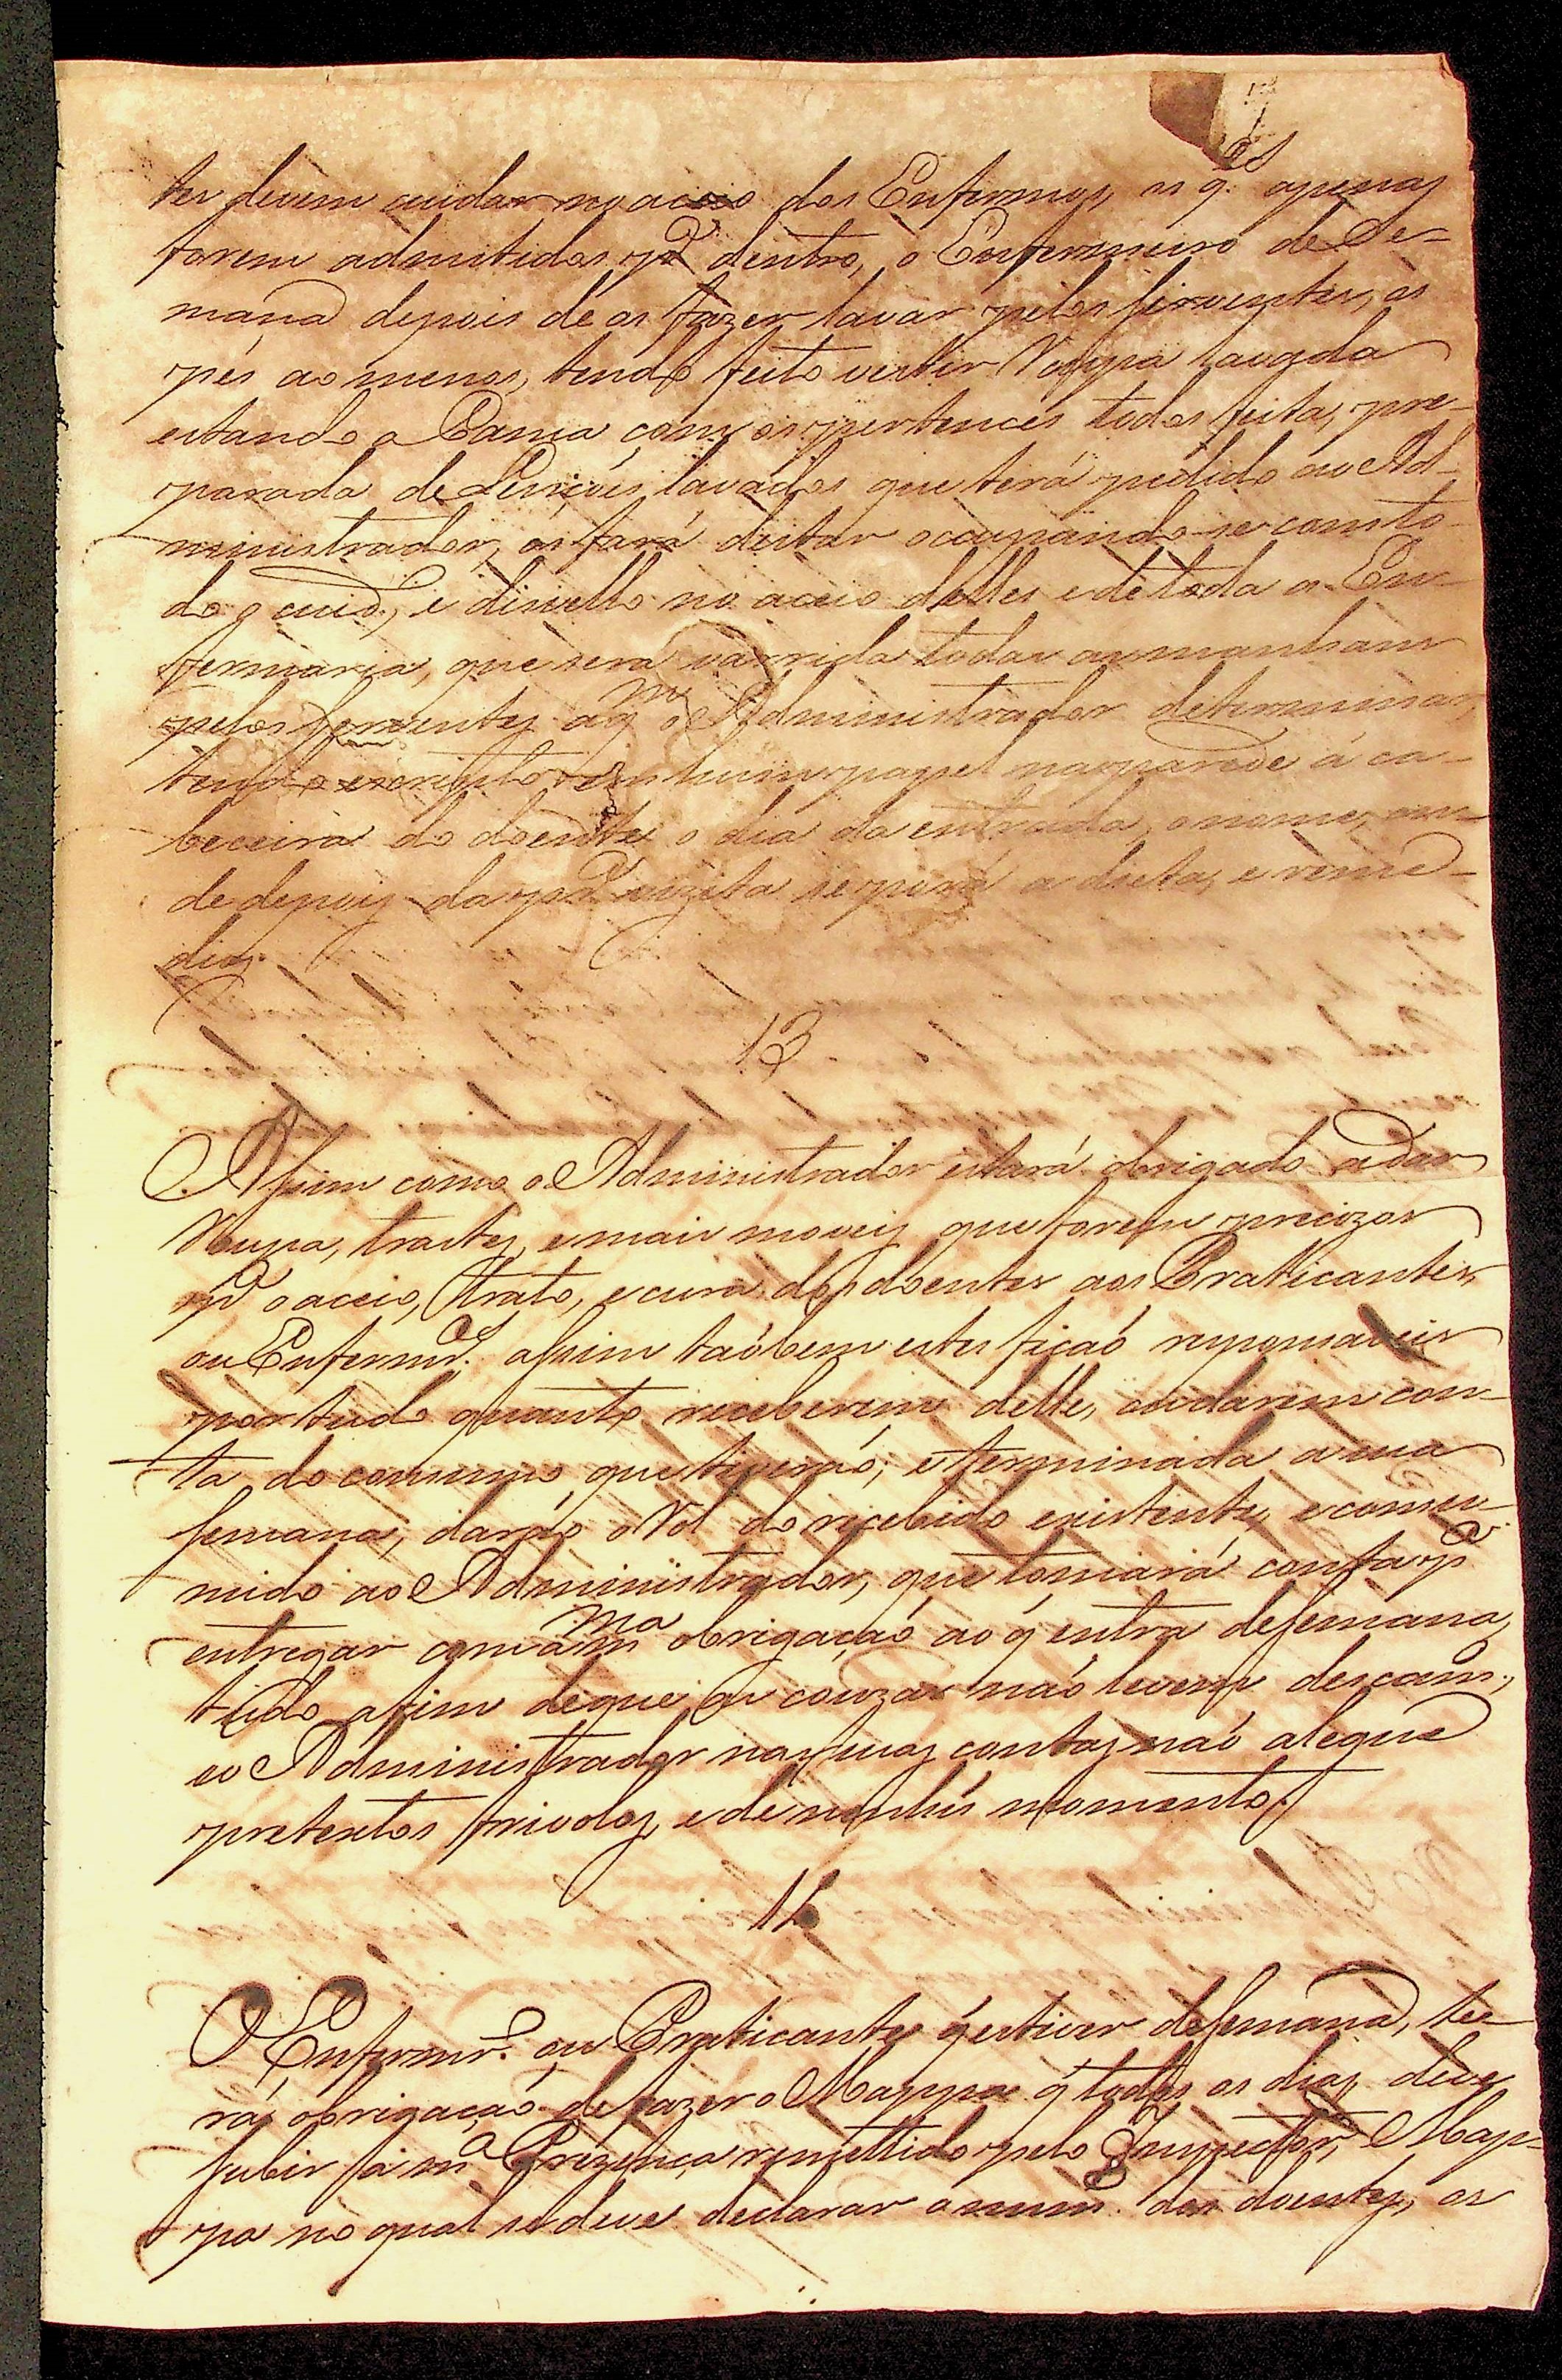 tes devem cuidar no aceio dos Enfermos, os q.es apenas
forem admitidos p.a dentro, o Enfermeiro de Se-
mana depois de os fazer lavar pelos serventes, os
pés ao menos, tendo feito vestir Roupa lavada
estando a Cama com os pertences todos feita, pre-
parada de Lençóes lavados que terá pedido ao Ad-
ministrador, os fará deitar occupando-se com to-
do o cuid.o, e disvello no aceio delles e de toda a En-
fermaria, que sera varrida todas as manhans
pelos serventes a q.m o Administrador determinar,
tendo escripto em hum papel na parede á ca-
beceira do doente o dia da entrada, o nome, on-
de depois da p.ra vizita se porá a dieta, e reme-
dios.
13
Assim como o Administrador estará obrigado a dar
Roupa, trastes, e mais moveis que forem precizos
p.a o aceio, trato, e cura dos doentes aos Praticantes,
ou Enfermr.os assim taobem estes ficaó responsaveis
por tudo quanto receberem delle, e a darem con-
ta do consumo que tiveraó; e terminada a sua
semana, daraó o Rol do recebido existente, e consu-
mido ao Administrador, que tomará conta p.a
entregar com a m.ma obrigaçaó ao q̃ entra de semana,
tudo afim de que as couzas naó levem descam.o,
e o Administrador nas suas contas naó alegue
pretextos frivolos, e de nenhũ momento.
14
O Enfermr.o ou Praticante q̃ estiver de semana, te-
rá obrigaçaó de fazer o Mappa q̃ todos os dias deve
subir á m.a Prezença remettido pelo Inspector, Map-
pa no qual se deve declarar o num.o dos doentes, os